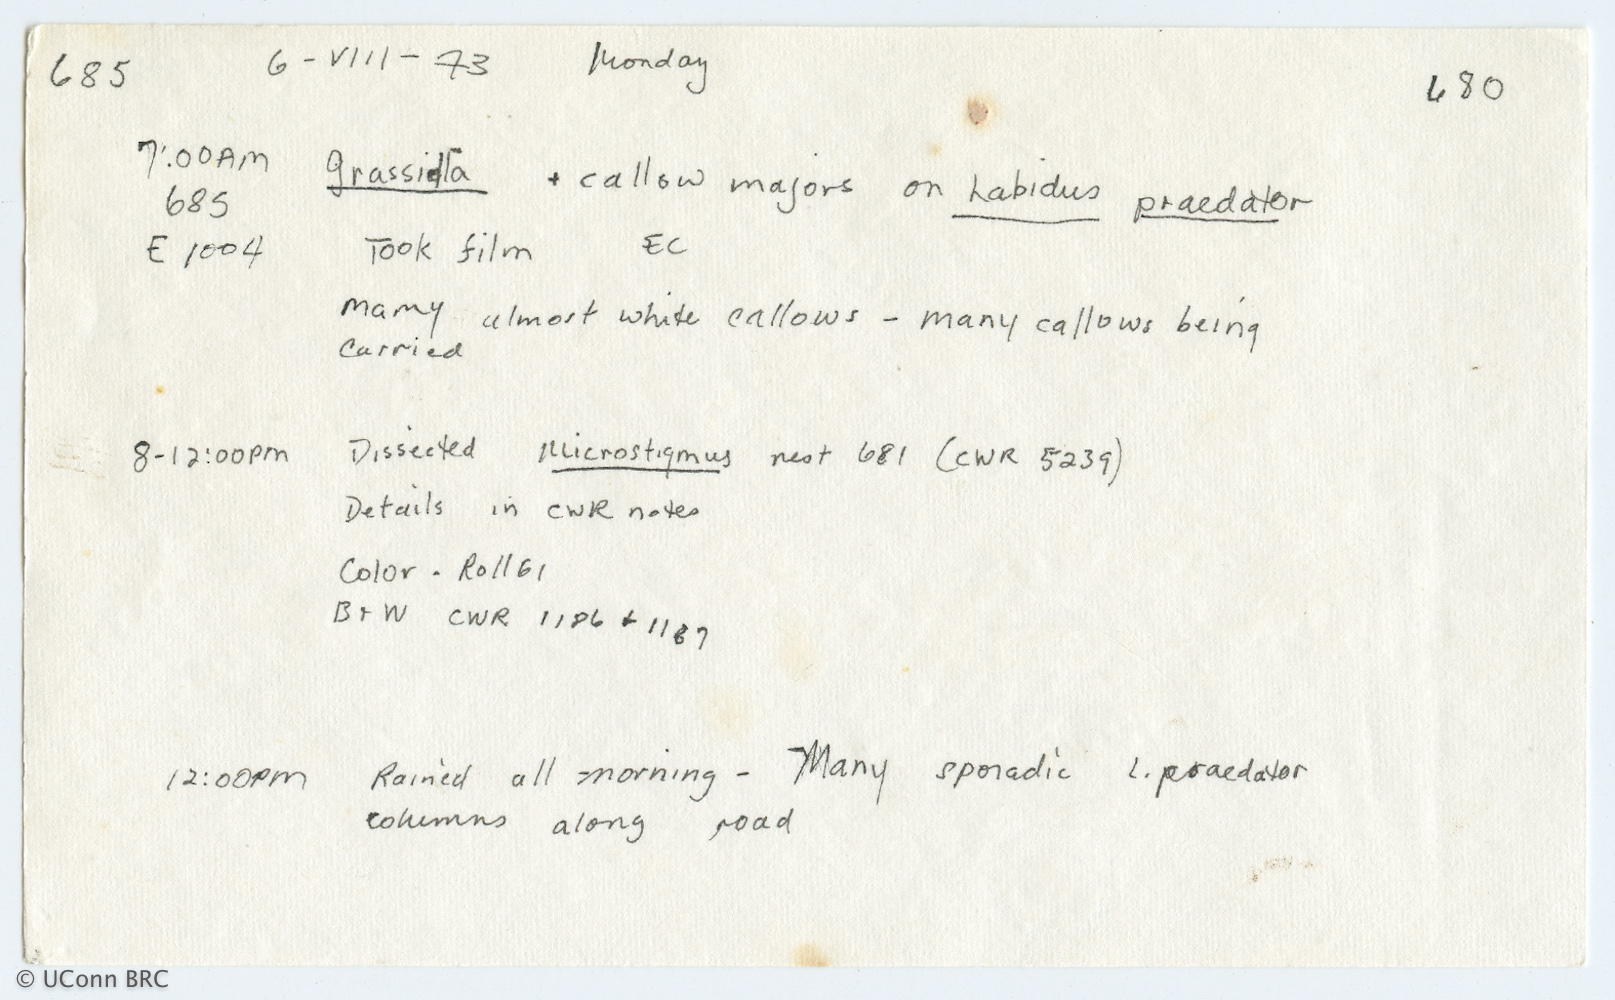 685 6-VIII-73 Monday 680
7:00AM grassidta + callow majors on Labidus praedator
685
E 1004 Took film EC
Many almost white callows - many callows being
carried
8-12:00pm Dissected Microstigmus nest 681 (CWR 5239)
Details in CWR notes
Color. Roll 61
B+W CWR 1186 + 1187
12:00pm Rained all morning - Many sporadic L. praedator
columns along road
© UConn BRC